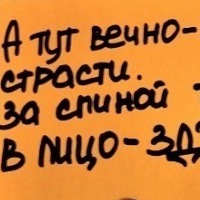 А тут вечно-
страсти.
за спиной -
в лицо-